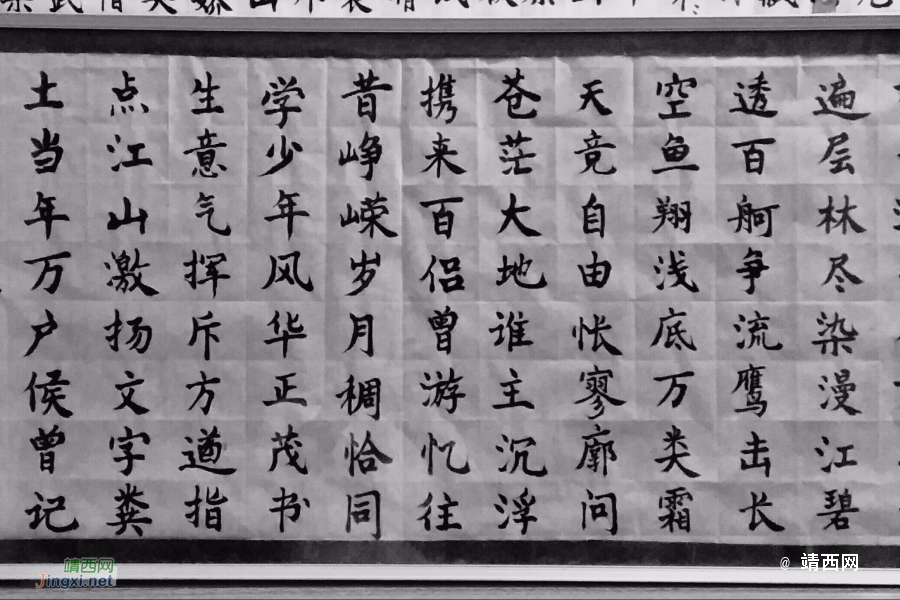 遍层林尽染漫江碧
透百舸争流鹰击长
空鱼翔浅底万类霜
天竟自由怅寥廓问
苍茫大地谁主沉浮
携来百侣曾游忆往
昔峥嵘岁月稠恰同
学少年风华正茂书
生意气挥斥方遒指
点江山激扬文字粪
土当年万户侯曾记
靖西网
Jingxi.net
@ 靖西网